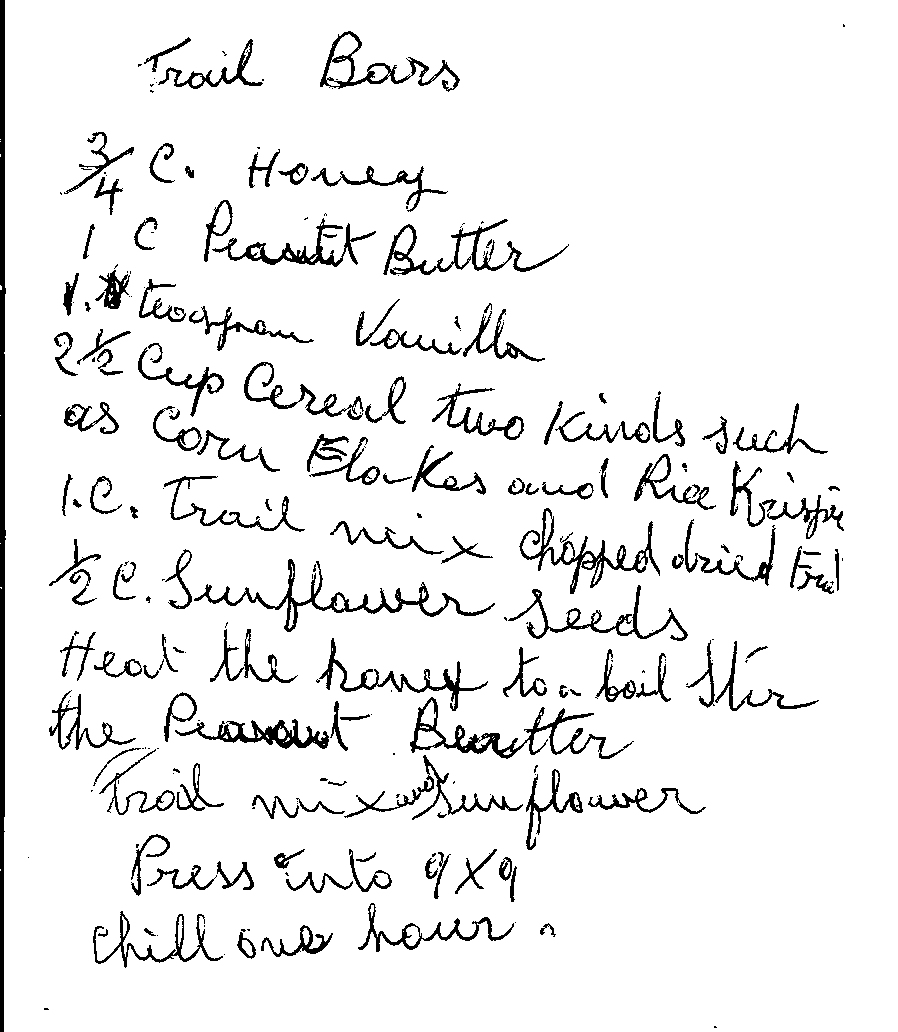 Trail Bars
3/4 C. Honey
1 C Peanut Butter
1. teaspoon Vanilla
2 1/2 Cup Cereal two Kinds such
as Corn Flakes and Rice Krispie
1.C. Trail mix chopped dried
1/2 C. Sunflower seeds
Heat the honey to a boil Stir
the Peanut Beutter
Trail mix and Sunflower
Press into 9X9
chill one hour.